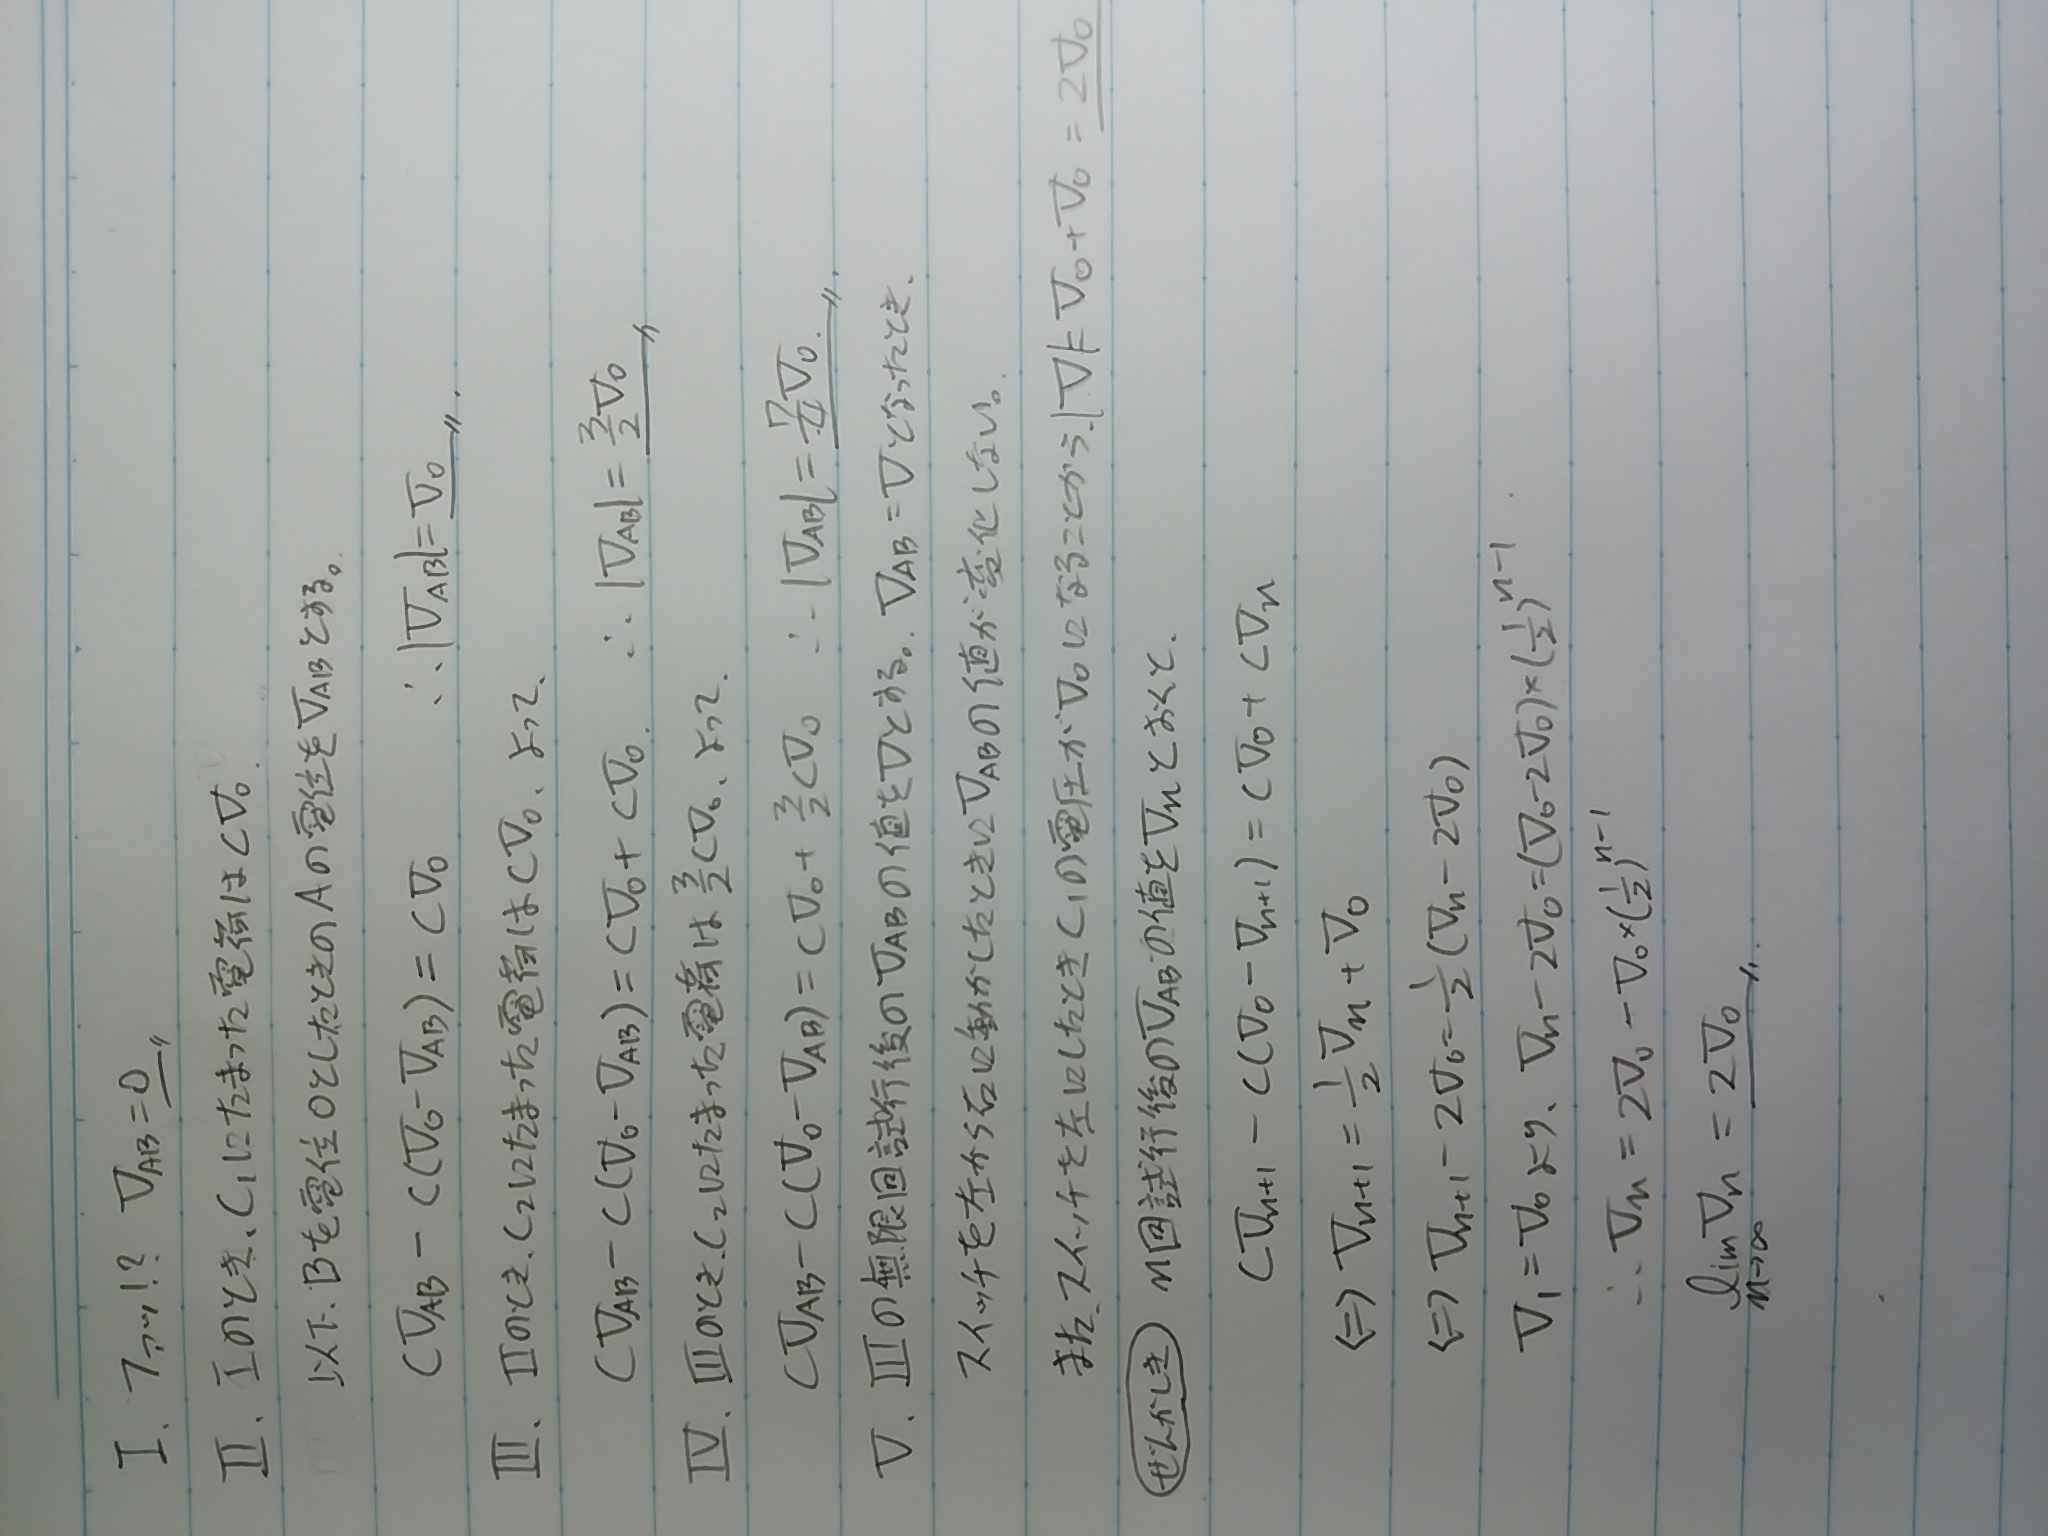 I、ファッ!? V_AB=0〃
II、Iのとき、C₁にたまった電荷はCV₀.
以下、Bを電位0としたときのAの電位をV_ABとする。
CV_AB-C(V₀-V_AB)=CV₀ ∴|V_AB|=V₀〃.
III、IIのとき、C₂にたまった電荷はCV₀、よって、
CV_AB-C(V₀-V_AB)=CV₀+CV₀. ∴|V_AB|=3/2V₀〃
IV、IIIのとき、C₂にたまった電荷は3/2CV₀、よって、
CV_AB-C(V₀-V_AB)=CV₀+3/2CV₀ ∴|V_AB|=7/4V₀.〃
V、IIIの無限回試行後のV_ABの値をVとする。V_AB=Vとなったとき、
スイッチを左から右に動かしたときにV_ABの値が変化しない。
また、スイッチを左にしたときC₁の電圧がV₀になることから、|V|=V₀+V₀=2V₀
ぜんかしき n回試行後のV_ABの値をVnとおくと、
CVn+1-C(V₀-Vn+1)=CV₀+CVn
⇔Vn+1=1/2Vn+V₀
⇔Vn+1-2V₀=1/2(Vn-2V₀)
V₁=V₀より、Vn-2V₀=(V₀-2V₀)×(1/2)ⁿ⁻¹
∴Vn=2V₀-V₀×(1/2)ⁿ⁻¹
lim n→∞ Vn=2V₀〃